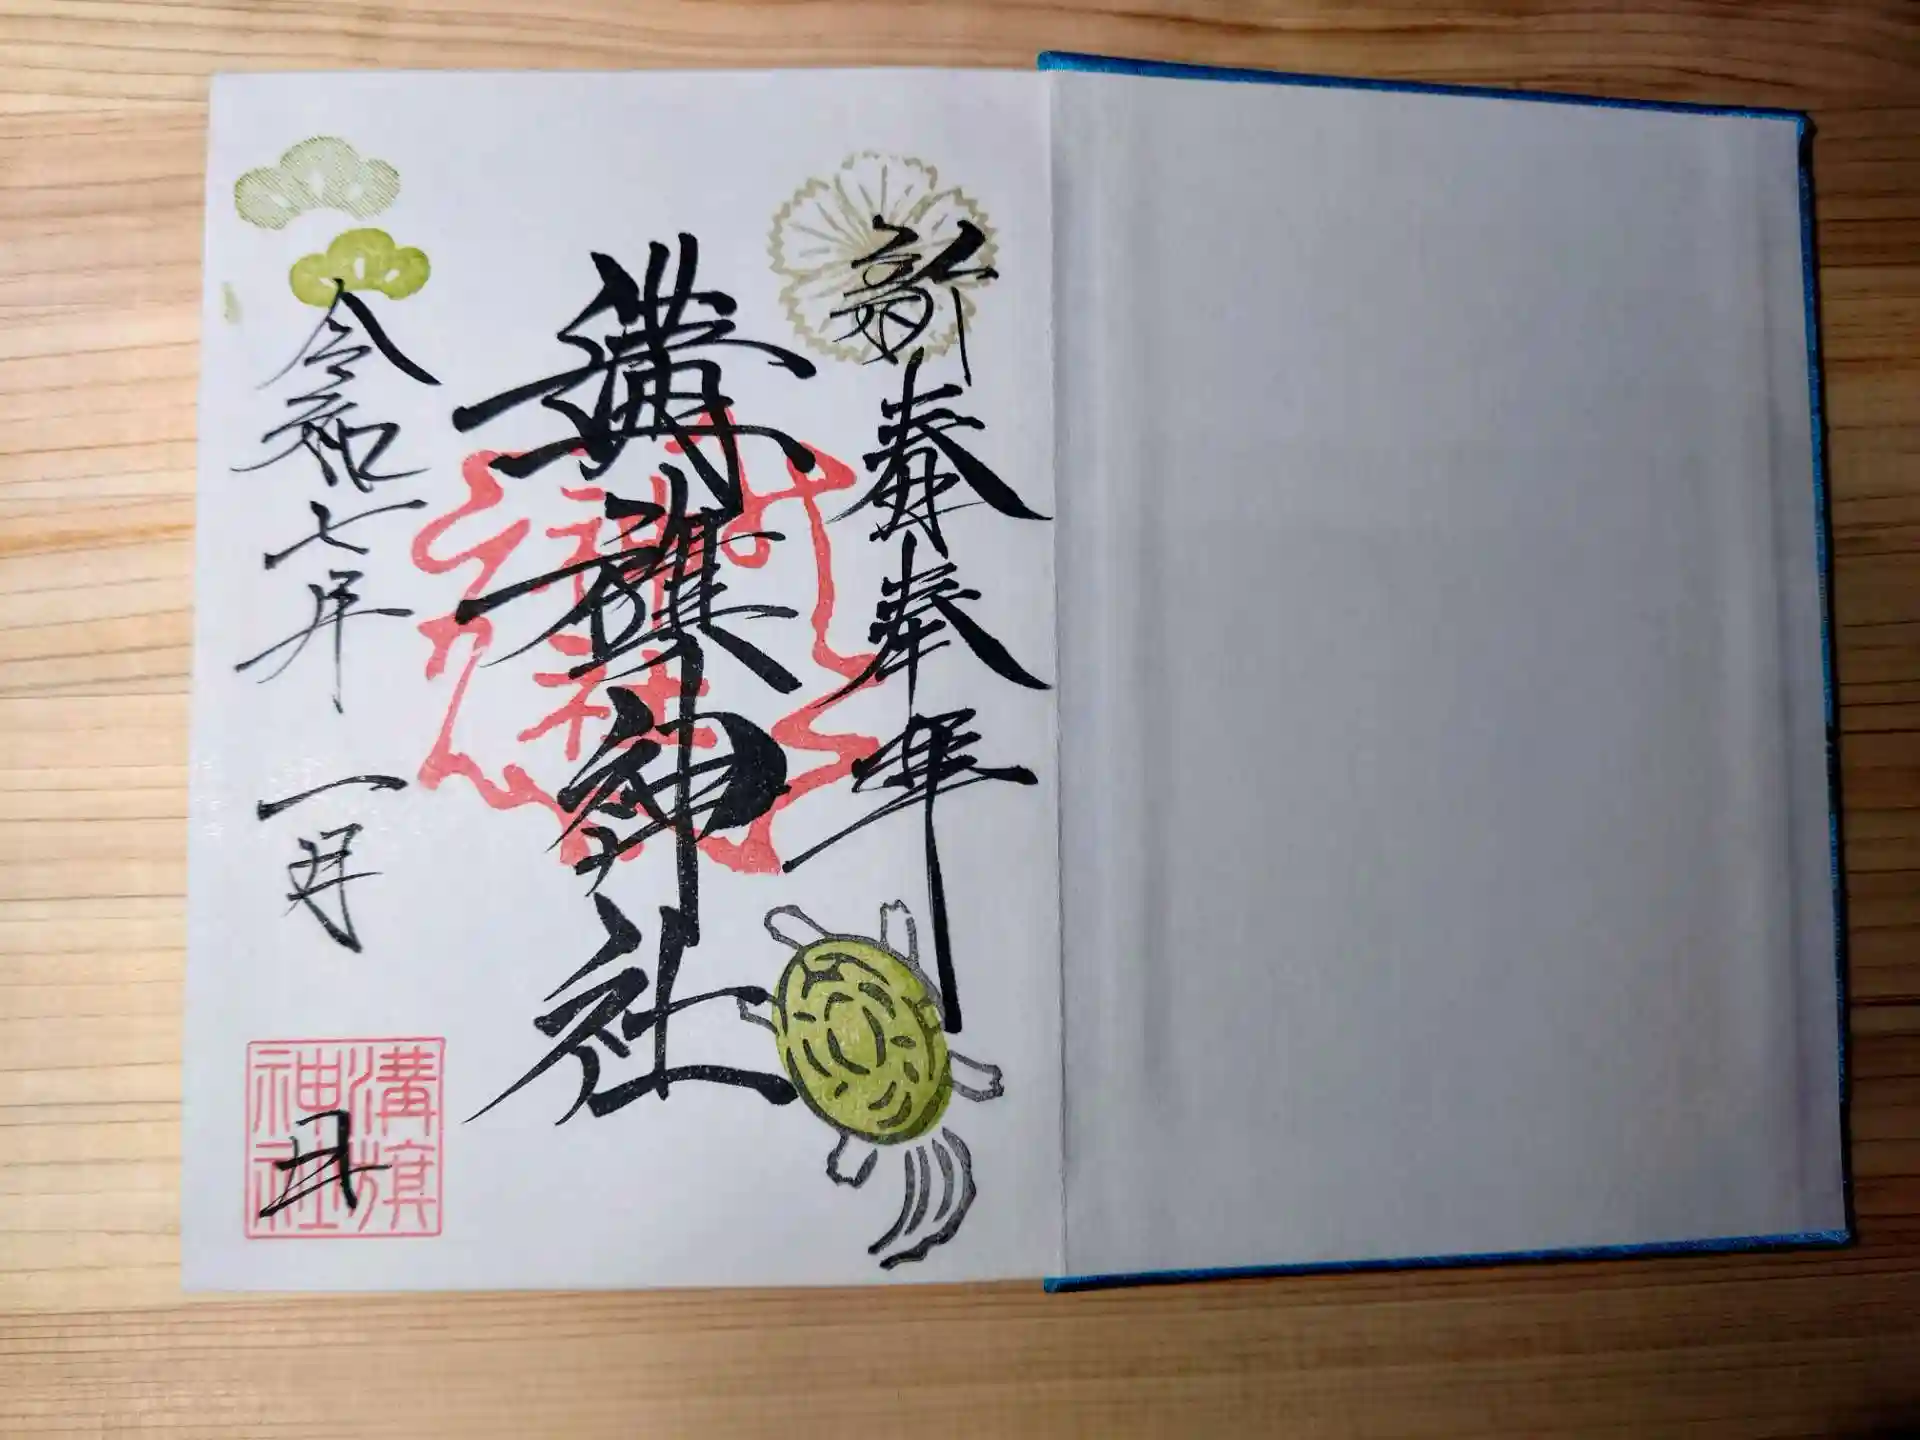 新春奉拝
溝旗神社
神社
令和七年 一月 日
溝旗
神社